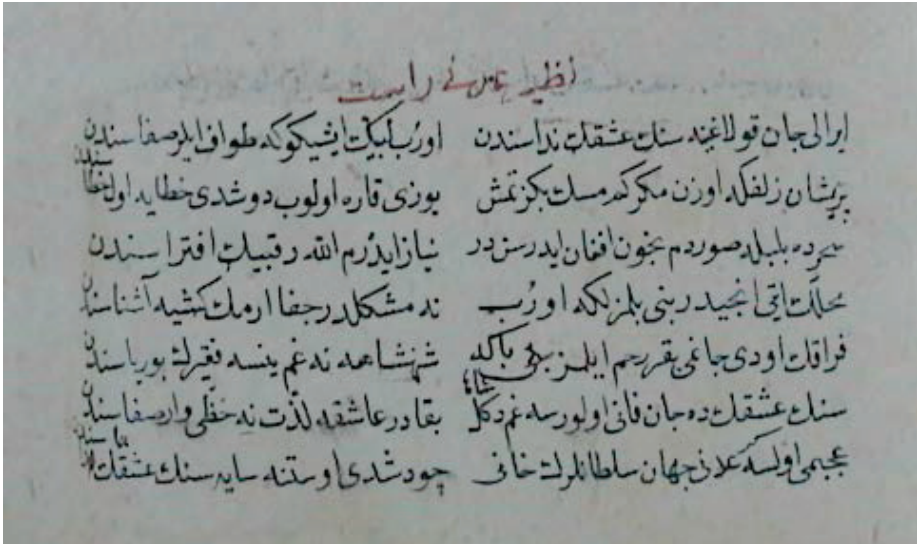 راست
ایرالی جان قولاغنه سنك عشقك نداسندن اورب لبیك ایشیكوكه طواف ایلر صفاسندن
پریشان زلفكه اوزن مكركم مسك بكزتمش یوزی قاره اولوب دوشدی خطایه اول خطاسندن
سحرده بلبله صوردم نچون افغان ایدرسن در نیاز ایدرم الله رقیبك افتراسندن
انجیدر بنی بلمزلكه اورب نه مشكلدر جفا ارمك كشیه آشناسندن
فراقك اودی جانمی یقر رحم ایلمز باكه شهنشاهمه نه غم ینسه فقیرك بوریاسندن
سنك عشقك ده جان فانی اولورسه غم دكل شاها بقادر عاشقه لذت نه حظی وار صفاسندن
عجبمی اولسه جهان سلطانلرك خانی چو دشدی اوستنه سایه سنك عشقك هماسندن